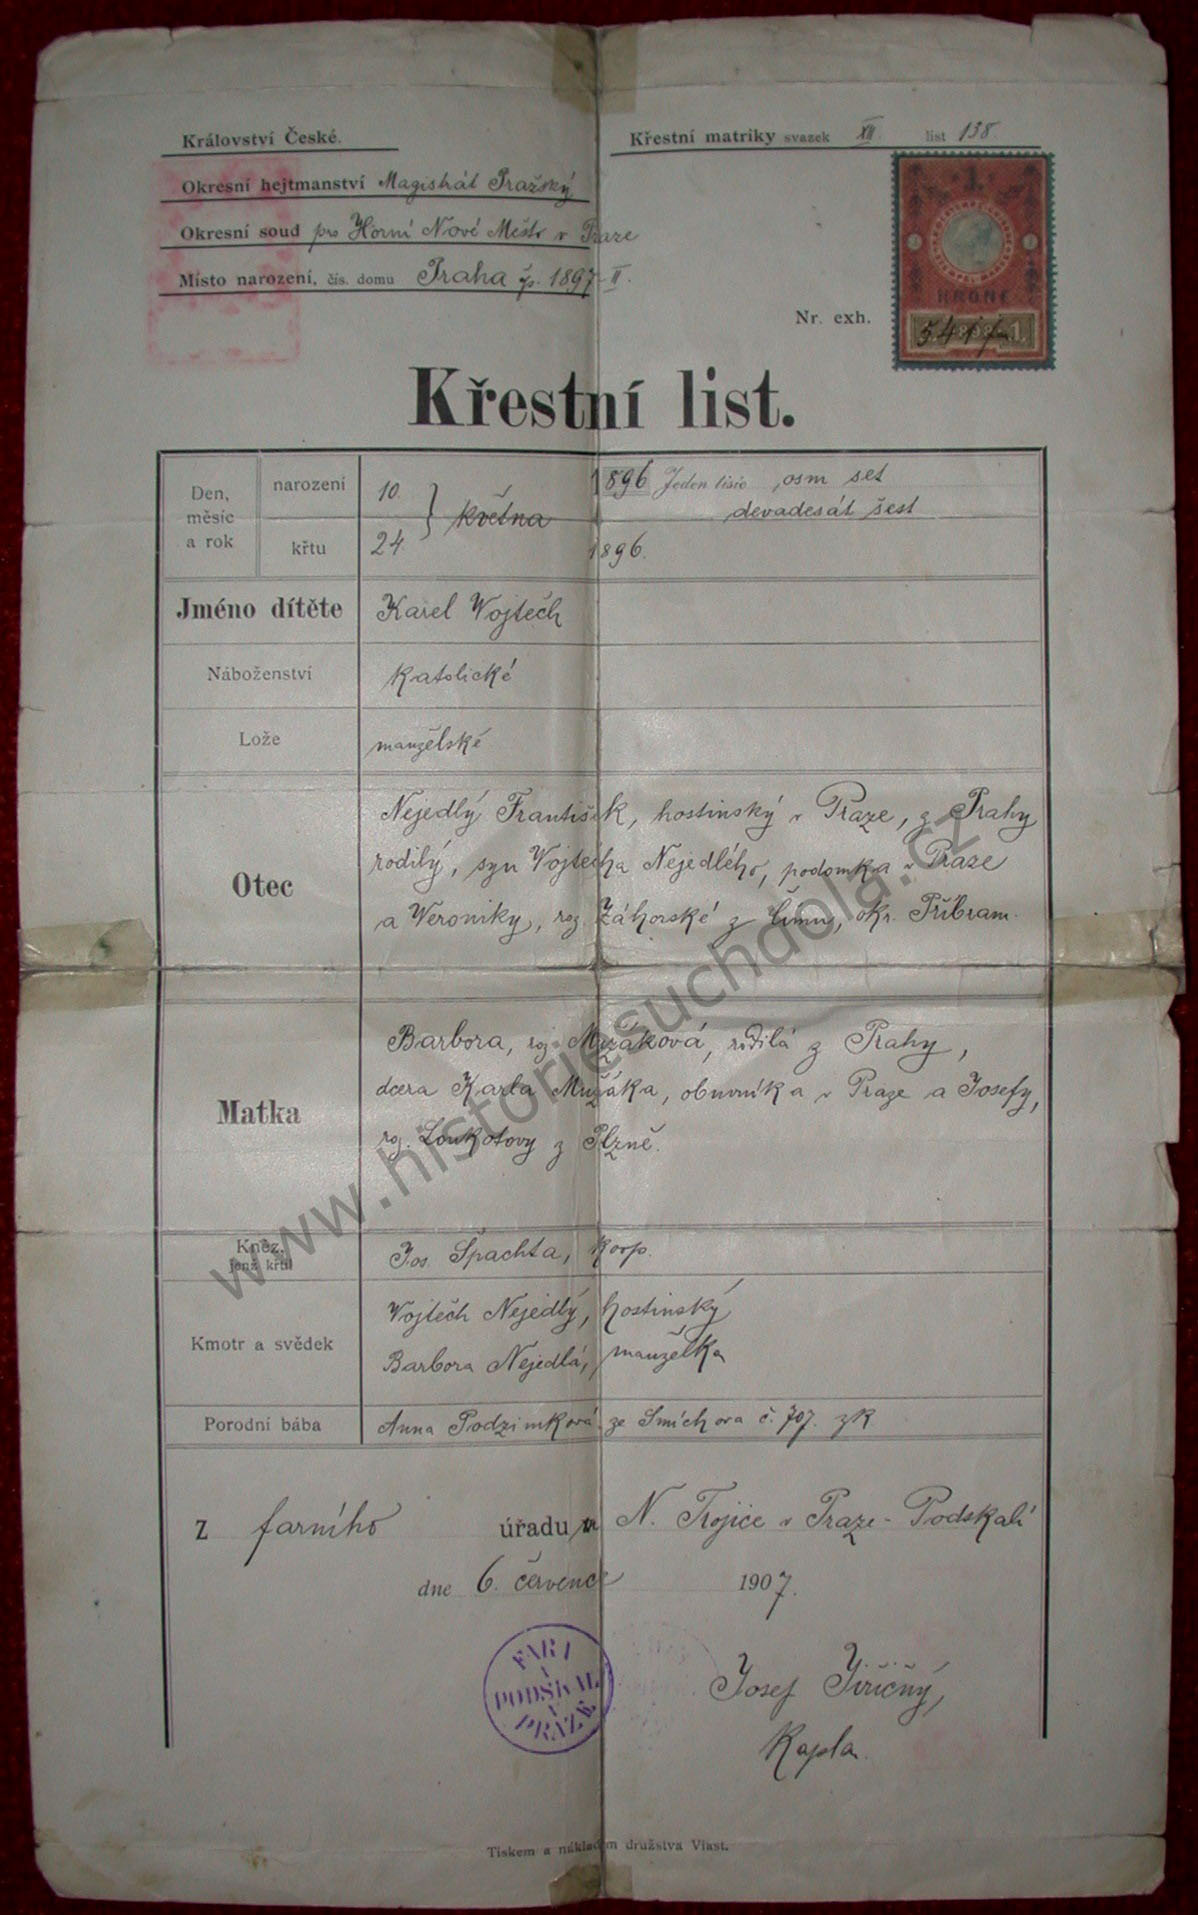 Království České.
Křestní matriky svazek XII. list 138.
Okresní hejtmanství Magistrát Pražský
Okresní soud pro Horní Nové Město v Praze
Místo narození, čís. domu Praha čp. 1897-II.
1.
KRONE
1898
Nr. exh.
Křestní list.
Den, měsíc a rok
narození 10. } května 1896 Jeden tisíc osm set
devadesát šest
křtu 24. 1896.
Jméno dítěte Karel Wojtěch
Náboženství katolické
Lože manželské
Otec
Nejedlý František, hostinský v Praze, z Prahy
rodilý, syn Wojtěcha Nejedlého, podomka v Praze
a Weroniky, roz. Záhorské z , okr. Příbram.
Matka
Barbora, roz. Mužáková, rodilá z Prahy,
dcera Karla Mužáka, obuvníka v Praze a Josefy,
roz. Loukotovy z Plzně.
Kněz, jenž křtil Jos. Špachta, koop.
Kmotr a svědek
Wojtěch Nejedlý, hostinský
Barbora Nejedlá, manželka
Porodní bába Anna Podzimková ze Smíchova č. 707. zk
Z farního úřadu N. Trojice v Praze-Podskalí
dne 6. července 1907.
FARA
PODSKAL
V
PRAZE
Josef Jiřičný,
Kapla.
Tiskem a nákladem družstva Vlast.
www.historiesuchdola.cz